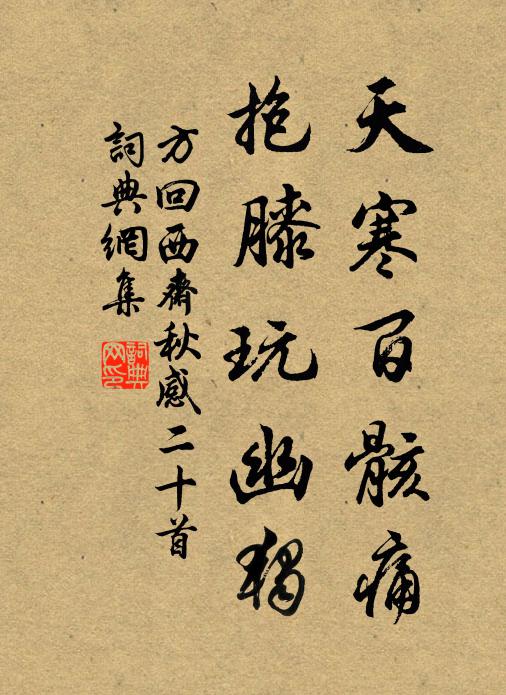 天寒百骸痛
抱膝玩幽獨
方回西齋秋感二十首
詞典網集
詞典网印